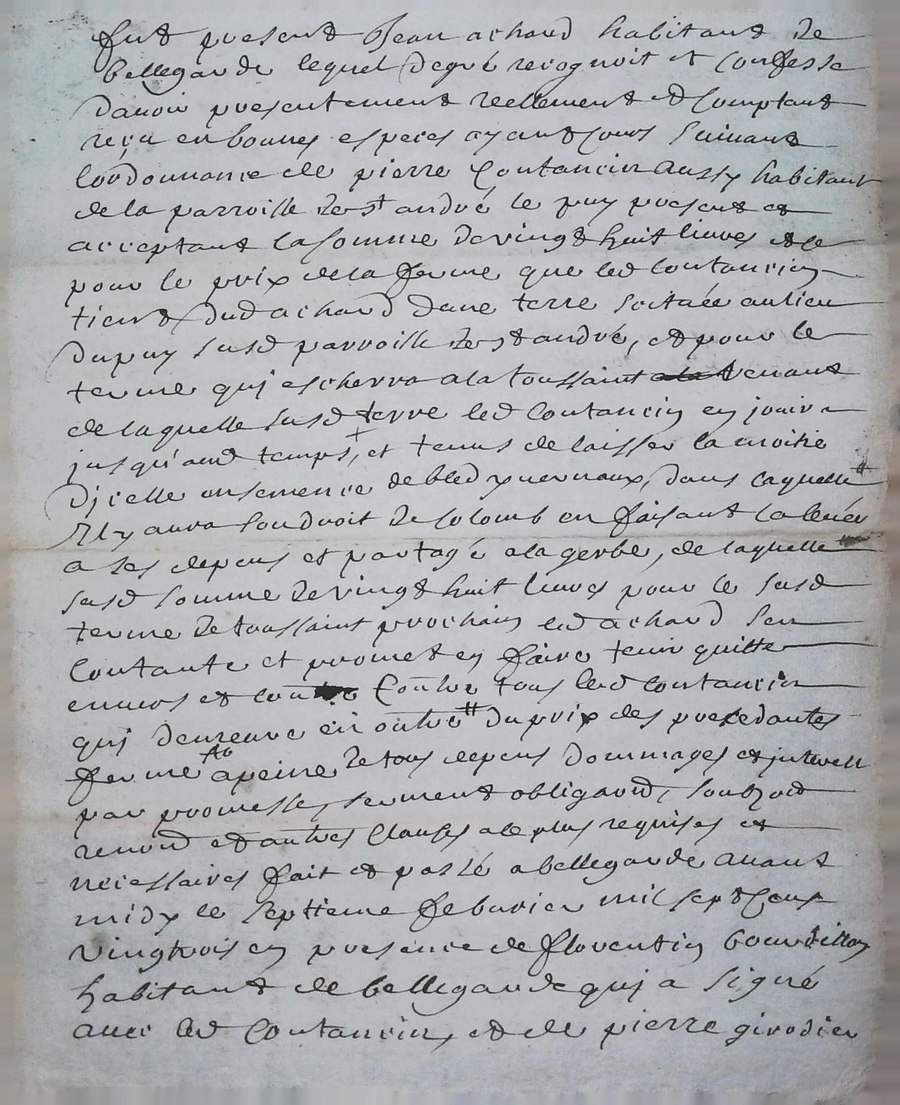 fut present Jean achard habitant de
bellegarde lequel degré recognoit et confesse
davoir presentement reellement et comptant
reçu en bonnes especes ayant cours suivant
lordonnance de pierre Coutancin aussy habitant
de la parroisse de st andré le puy present et
acceptant la somme de vingt huit livres et ce
pour le prix de la ferme que led Coutancin
tient dud achard dune terre scituée au lieu
du puy susd parroisse de st andré, et pour le
terme qui escherra a la toussaint venant
de laquelle susd terre led Coutancin en jouira
jusqu'aud temps, et tenus de laisser la moitié
dicelle ensemencé de bled yvernaux, dans laquelle
Il y aura son droit de Colomb en faisant la levée
a ses depens et partagé a la gerbe, de laquelle
susd somme de vingt huit livres pour le susd
terme de toussaint prochain led achard sen
Contante et promet en faire tenir quitte
envers et Contre tous led Coutancin
qui demeure en outre du prix des precedantes
ferme a peine de tous depens dommages et interest
par promesse, serment obligaond, soubzod
renond et autres Clauses a ce plus requises et
necessaires fait et passé a bellegarde avant
midy le septieme febvrier mil sept Cens
vingt trois en presence de florentin bourdillon
habitant de bellegarde qui a signé
avec led Coutancin, et de pierre girodier